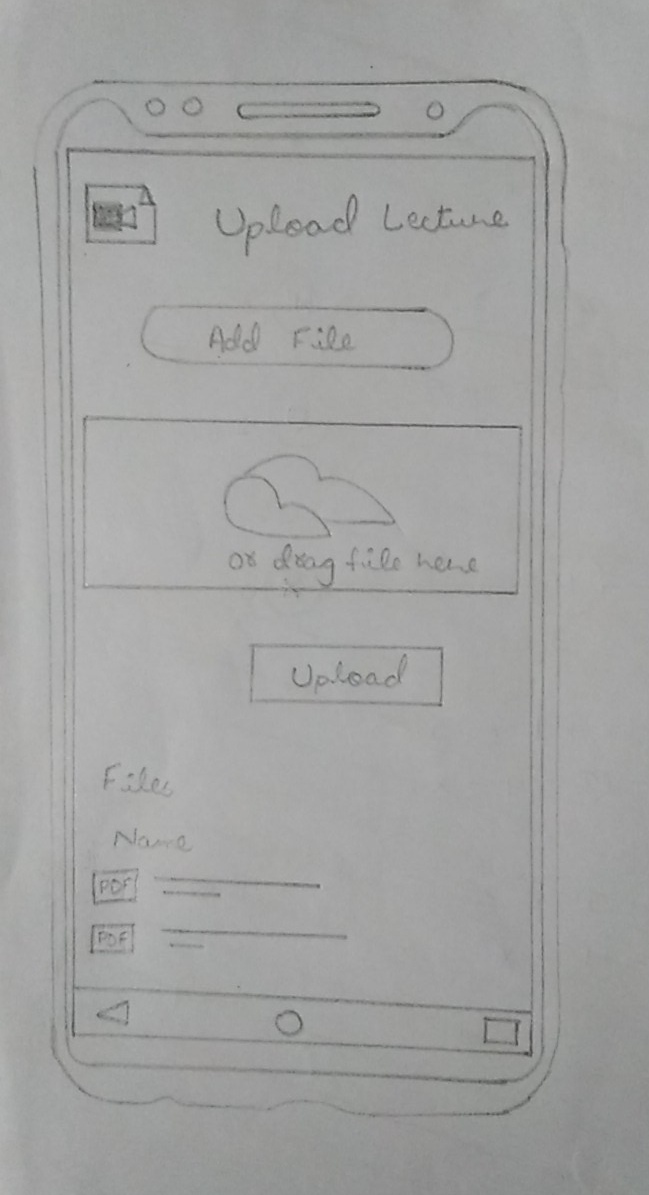 Upload Lecture
Add File
or drag file here
Upload
Files
Name
PDF
PDF